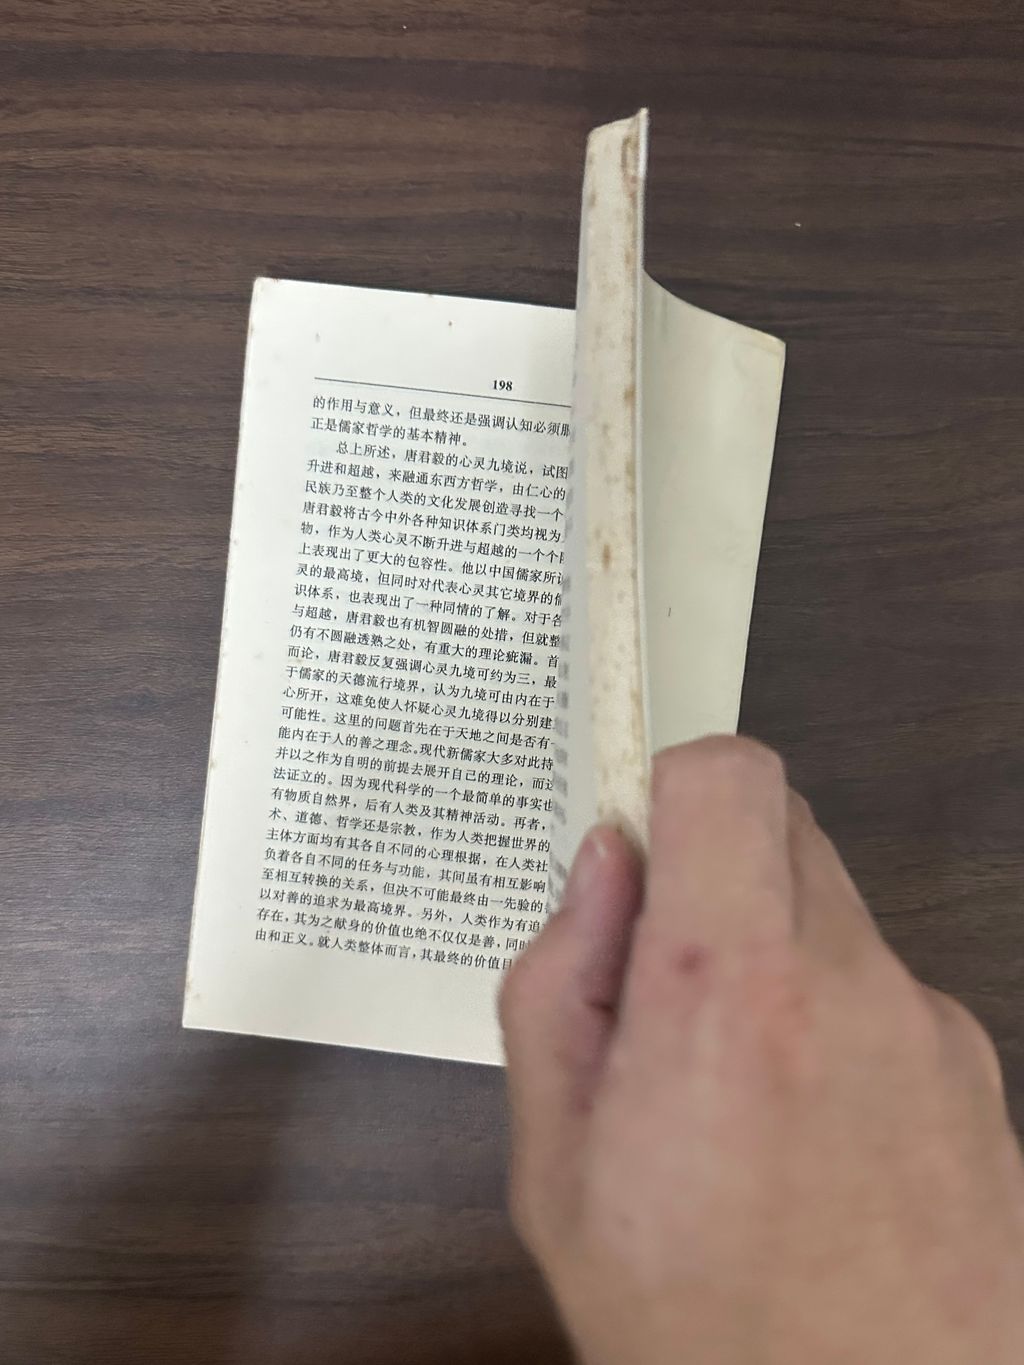 198
的作用与意义，但最终还是强调认知必须服
正是儒家哲学的基本精神。
总上所述，唐君毅的心灵九境说，试图
升进和超越，来融通东西方哲学，由仁心的
民族乃至整个人类的文化发展创造寻找一个
唐君毅将古今中外各种知识体系门类均视为
物，作为人类心灵不断升进与超越的一个个阶
上表现出了更大的包容性。他以中国儒家所说
灵的最高境，但同时对代表心灵其它境界的
识体系，也表现出了一种同情的了解。对于各
与超越，唐君毅也有机智圆融的处措，但就整
仍有不圆融透熟之处，有重大的理论疵漏。首
而论，唐君毅反复强调心灵九境可约为三，最
于儒家的天德流行境界，认为九境可由内在于
心所开，这难免使人怀疑心灵九境得以分别建
可能性。这里的问题首先在于天地之间是否有一
能内在于人的善之理念。现代新儒家大多对此持
并以之作为自明的前提去展开自己的理论，而这
法证立的。因为现代科学的一个最简单的事实也
有物质自然界，后有人类及其精神活动。再者，
术、道德、哲学还是宗教，作为人类把握世界的
主体方面均有其各自不同的心理根据，在人类社
负着各自不同的任务与功能，其间虽有相互影响
至相互转换的关系，但决不可能最终由一先验的
以对善的追求为最高境界。另外，人类作为有追
存在，其为之献身的价值也绝不仅仅是善，同时
由和正义。就人类整体而言，其最终的价值目